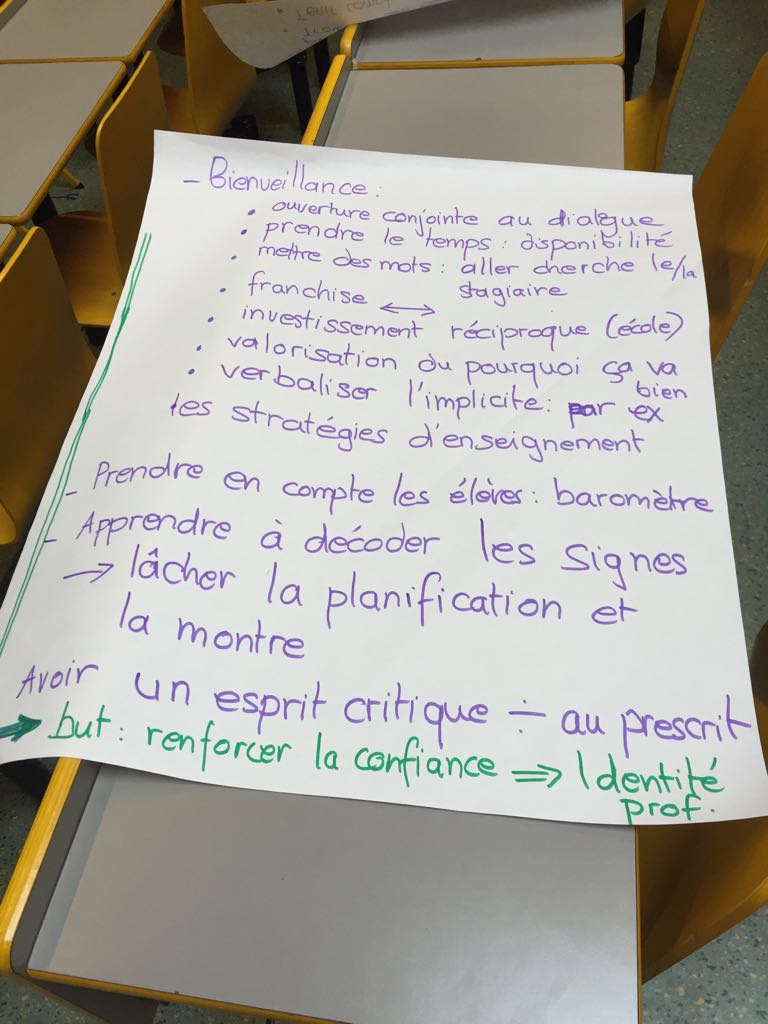 - Bienveillance :
• ouverture conjointe au dialogue
• prendre le temps : disponibilité
• mettre des mots : aller cherche le/la
stagiaire
• franchise ↔
• investissement réciproque (école)
• valorisation du pourquoi ça va
bien
• verbaliser l'implicite : par ex
les stratégies d'enseignement
- Prendre en compte les élèves : baromètre
- Apprendre à décoder les signes
→ lâcher la planification et
la montre
Avoir un esprit critique ÷ au prescrit
→ but : renforcer la confiance ⇒ Identité
prof.